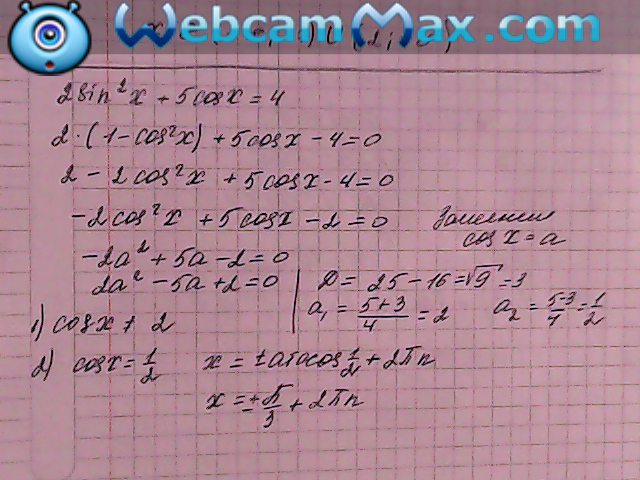 WebcamMax.com
2sin²x + 5cosx = 4
2·(1-cos²x) + 5cosx - 4 = 0
2 - 2cos²x + 5cosx - 4 = 0
-2cos²x + 5cosx - 2 = 0
cosx = a
-2a² + 5a - 2 = 0
2a² - 5a + 2 = 0
D = 25 - 16 = √9 = 3
a₁ = (5+3)/4 = 2 a₂ = (5-3)/4 = 1/2
1) cosx ≠ 2
2) cosx = 1/2 x = ± arccos 1/2 + 2πn
x = ± π/3 + 2πn